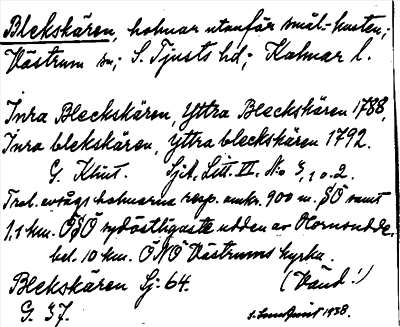 Blekskären, holmar utanför smål-kusten;
Västrum sn; S. Tjusts hd; Kalmar l.
Inra Bleckskären, Yttra Bleckskären 1788,
Inra blekskären, Yttra bleckskären 1792.
G. Klint. Sjk. Litt. II. No 3, 1 o. 2.
Trol. avsågs holmarna resp. omkr. 900 m. SO samt
1,1 km. OSO sydostligaste udden av Hornsudde,
bel. 10 km. ONO Västrums kyrka.
Bleckskären Sj. 64. (Vänd!)
G. 37. 1938.